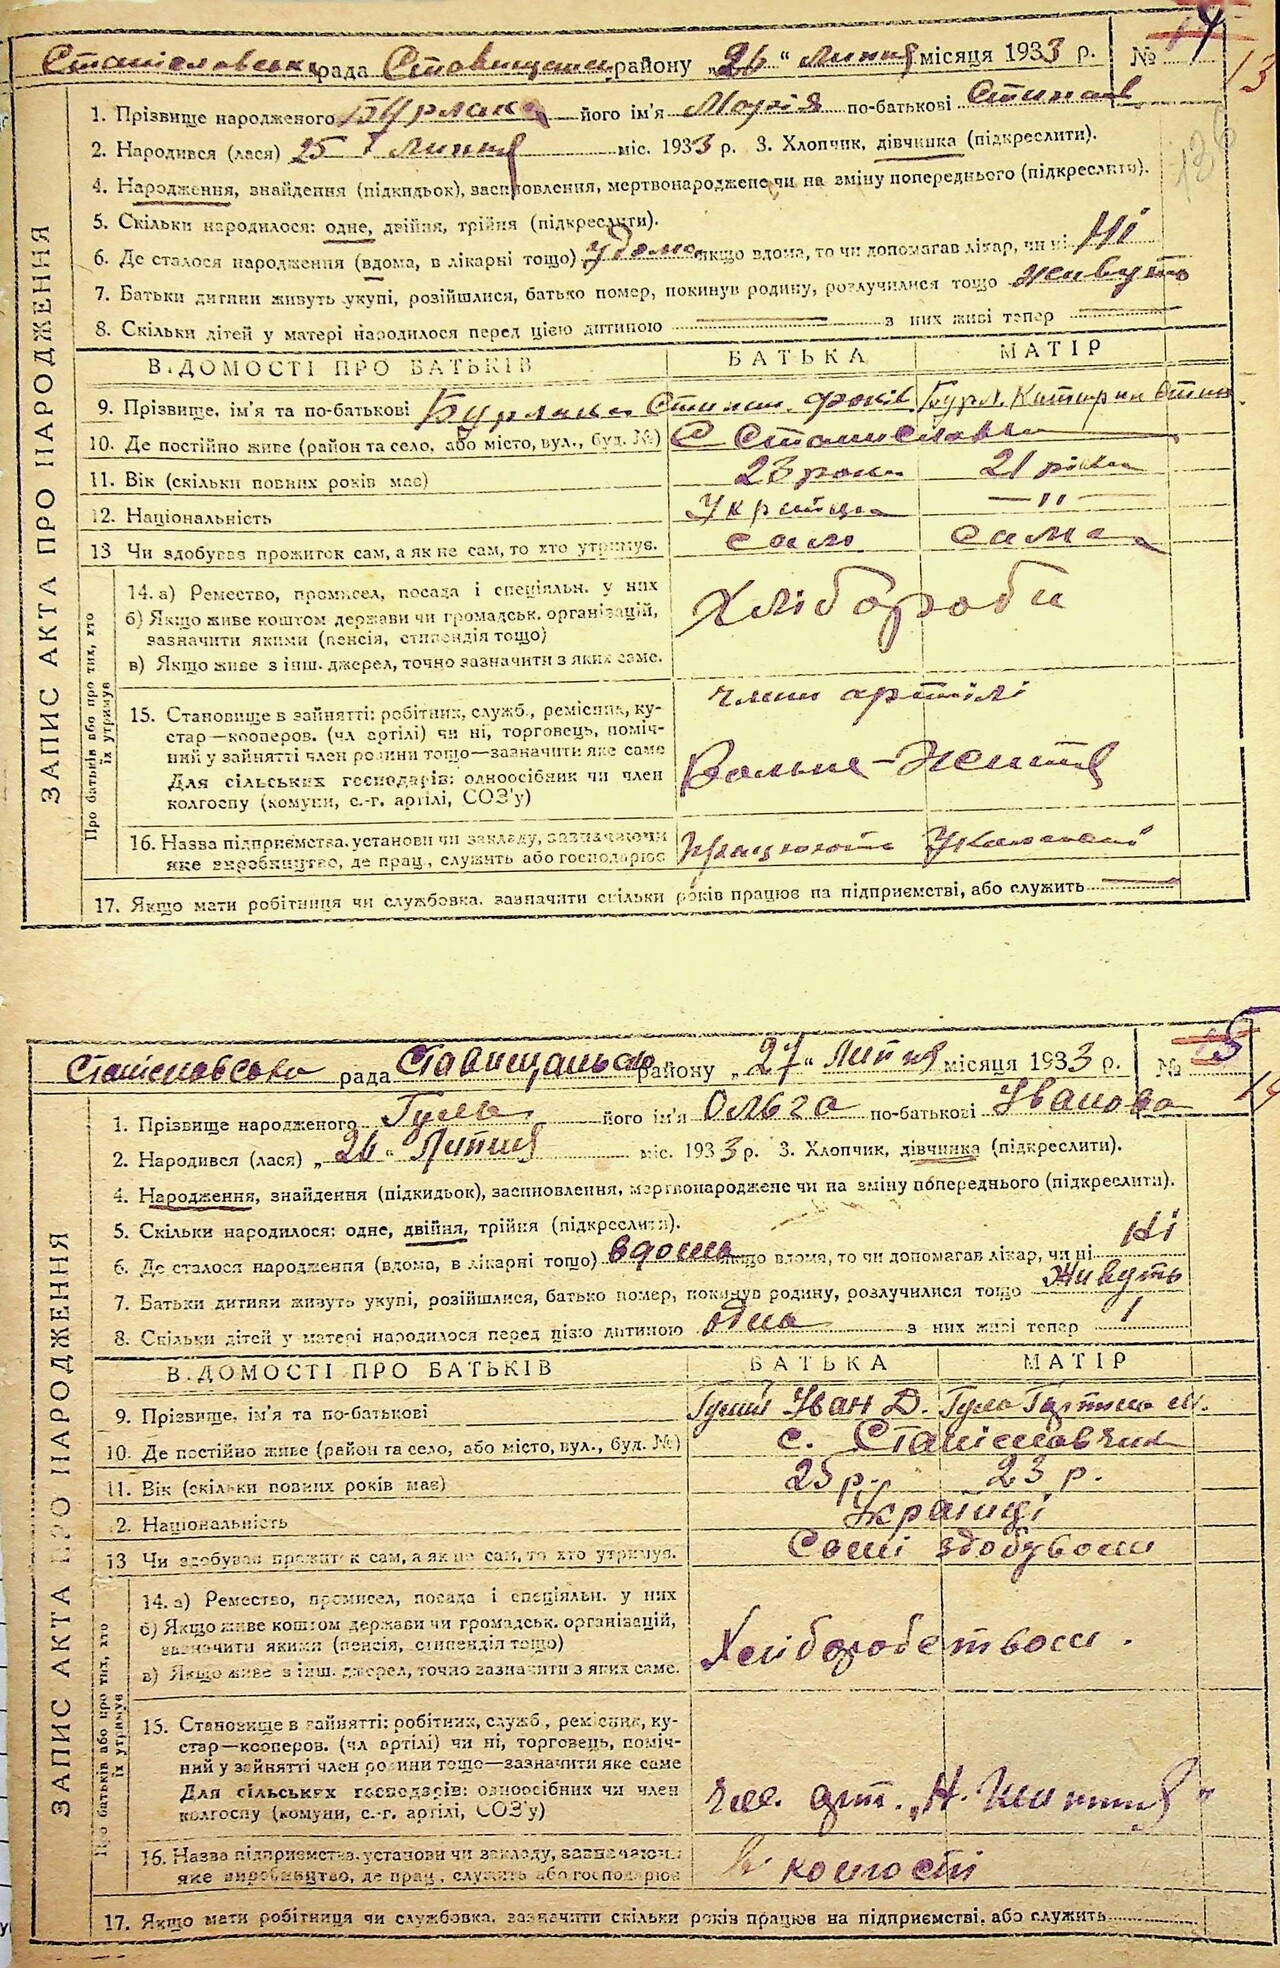 Станіславська рада Ставищан. району „26“ Липня місяця 1933 р. № 14
13
1. Прізвище народженого Бурлака його ім'я Марія по-батькові Степанів
2. Народився (лася) 25 Липня міс. 1933 р. 3. Хлопчик, дівчинка (підкреслити).
136
4. Народження, знайдення (підкидьок), засиновлення, мертвонароджене чи на зміну попереднього (підкреслити).
5. Скільки народилося: одне, двійня, трійня (підкреслити).
6. Де сталося народження (вдома, в лікарні тощо) удома якщо вдома, то чи допомагав лікар, чи ні Ні
7. Батьки дитини живуть укупі, розійшлися, батько помер, покинув родину, розлучилися тощо живуть
8. Скільки дітей у матері народилося перед цією дитиною — з них живі тепер —
ЗАПИС АКТА ПРО НАРОДЖЕННЯ
ВІДОМОСТІ ПРО БАТЬКІВ БАТЬКА МАТІР
9. Прізвище, ім'я та по-батькові Бурлака Степан Бурл. Катерина
10. Де постійно живе (район та село, або місто, вул., буд. №) С
11. Вік (скільки повних років має) 23 роки 21 рік
12. Національність Українц — " —
13 Чи здобував прожиток сам, а як не сам, то хто утримує. само сама
Про батьків або про тих, хто їх утримує
14. а) Ремество, промисел, посада і спеціяльн. у них
б) Якщо живе коштом держави чи громадськ. організацій,
зазначити якими (пенсія, стипендія тощо)
в) Якщо живе з інш. джерел, точно зазначити з яких саме.
Хлібороби
15. Становище в зайнятті: робітник, служб., ремісник, ку-
стар—кооперов. (чл артілі) чи ні, торговець, поміч-
ний у зайнятті член родини тощо—зазначити яке саме
Для сільських господарів: одноосібник чи член
колгоспу (комуни, с.-г. артілі, СОЗ'у)
члени артілі
16. Назва підприємства, установи чи закладу, зазначаючи
яке виробництво, де прац., служить або господарює
Працюють
17. Якщо мати робітниця чи службовка, зазначити скільки років працює на підприємстві, або служить —
рада району „27“ Липня місяця 1933 р. № 15
14
1. Прізвище народженого Гула його ім'я Ольга по-батькові Іванова
2. Народився (лася) „26“ Липня міс. 1933 р. 3. Хлопчик, дівчинка (підкреслити).
4. Народження, знайдення (підкидьок), засиновлення, мертвонароджене чи на зміну попереднього (підкреслити).
5. Скільки народилося: одне, двійня, трійня (підкреслити).
6. Де сталося народження (вдома, в лікарні тощо) вдома якщо вдома, то чи допомагав лікар, чи ні Ні
7. Батьки дитини живуть укупі, розійшлися, батько помер, покинув родину, розлучилися тощо Живуть
8. Скільки дітей у матері народилося перед цією дитиною одна з них живі тепер 1
ЗАПИС АКТА ПРО НАРОДЖЕННЯ
ВІДОМОСТІ ПРО БАТЬКІВ БАТЬКА МАТІР
9. Прізвище, ім'я та по-батькові Іван Д. Гула М.
10. Де постійно живе (район та село, або місто, вул., буд. №) с. Станіславчик
11. Вік (скільки повних років має) 25 р. 23 р.
12. Національність Українці
13 Чи здобував прожиток сам, а як не сам, то хто утримує. Самі здобували
Про батьків або про тих, хто їх утримує
14. а) Ремество, промисел, посада і спеціяльн. у них
б) Якщо живе коштом держави чи громадськ. організацій,
зазначити якими (пенсія, стипендія тощо)
в) Якщо живе з інш. джерел, точно зазначити з яких саме.
Хліборобством.
15. Становище в зайнятті: робітник, служб., ремісник, ку-
стар—кооперов. (чл артілі) чи ні, торговець, поміч-
ний у зайнятті член родини тощо—зазначити яке саме
Для сільських господарів: одноосібник чи член
колгоспу (комуни, с.-г. артілі, СОЗ'у)
чле. арт. „Н. Життя“
16. Назва підприємства, установи чи закладу, зазначаючи
яке виробництво, де прац., служить або господарює
в колгоспі
17. Якщо мати робітниця чи службовка, зазначити скільки років працює на підприємстві, або служить